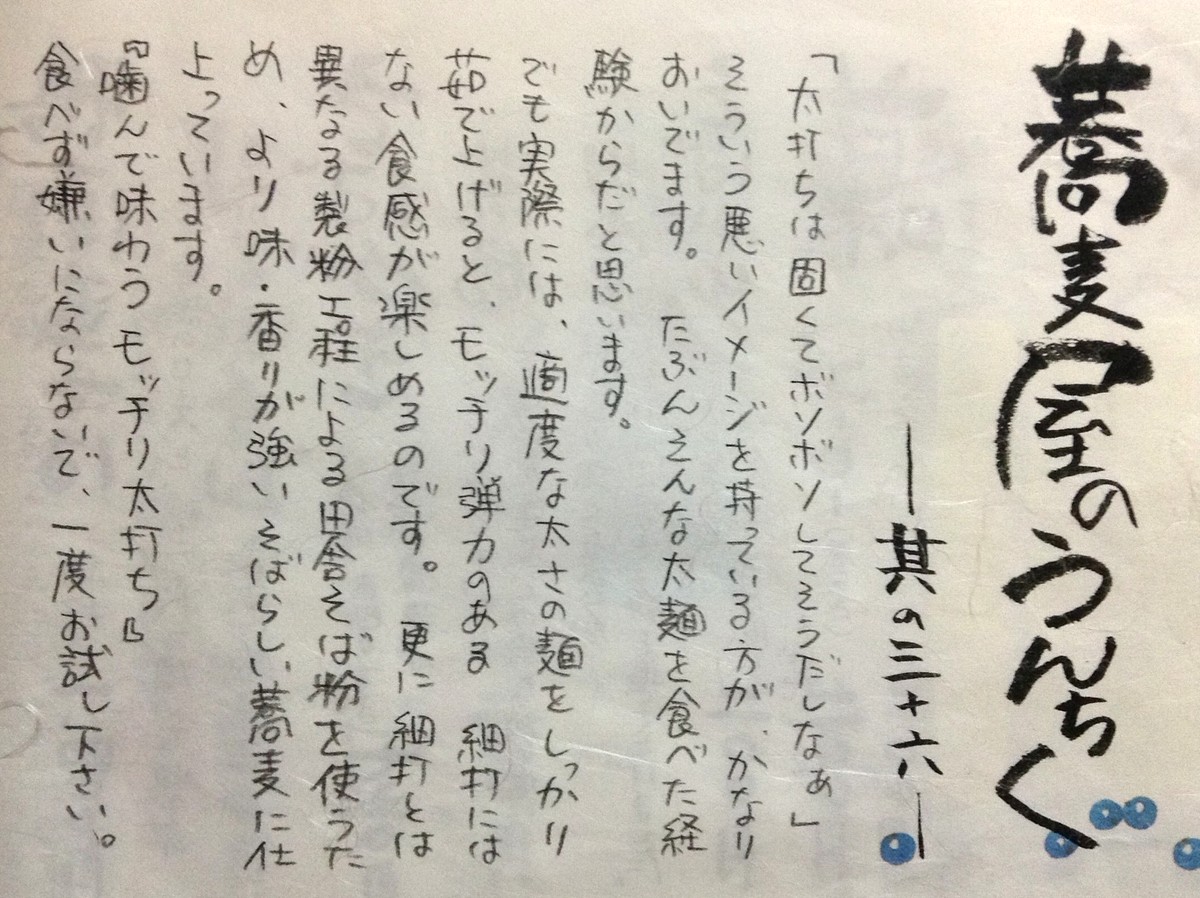 蕎麦屋のうんちく
―其の三十六―
「太打ちは固くてボソボソしてそうだしなぁ」
そういう悪いイメージを持っている方が、かなり
おいでます。 たぶんそんな太麺を食べた経
験からだと思います。
でも実際には、適度な太さの麺をしっかり
茹で上げると、モッチリ弾力のある 細打には
ない食感が楽しめるのです。 更に細打とは
異なる製粉工程による田舎そば粉を使うた
め、より味・香りが強いそばらしい蕎麦に仕
上っています。
『噛んで味わうモッチリ太打ち』
食べず嫌いにならないで、一度お試し下さい。